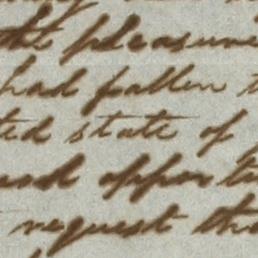 the pleasure
had fallen t
ted state of
and oppor
request tha